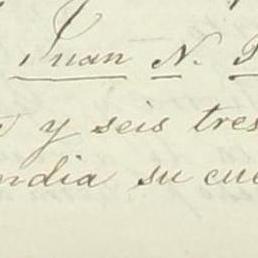 Juan N.
y seis tres
ndia su cue